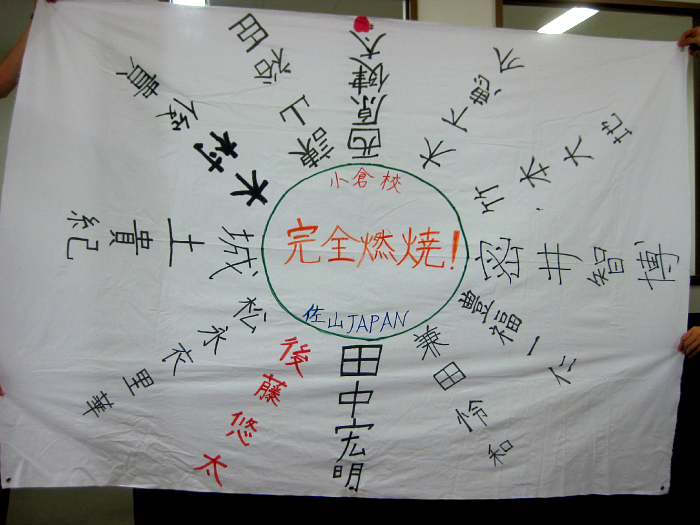 小倉校
完全燃焼!
佐山JAPAN
田中宏明
後藤悠太
松永衣里華
城土貴紀
木村友貴
諌山裕田
西原健太
木下恵介
竹本大地
密井智博
豊福一仁
兼田怜和